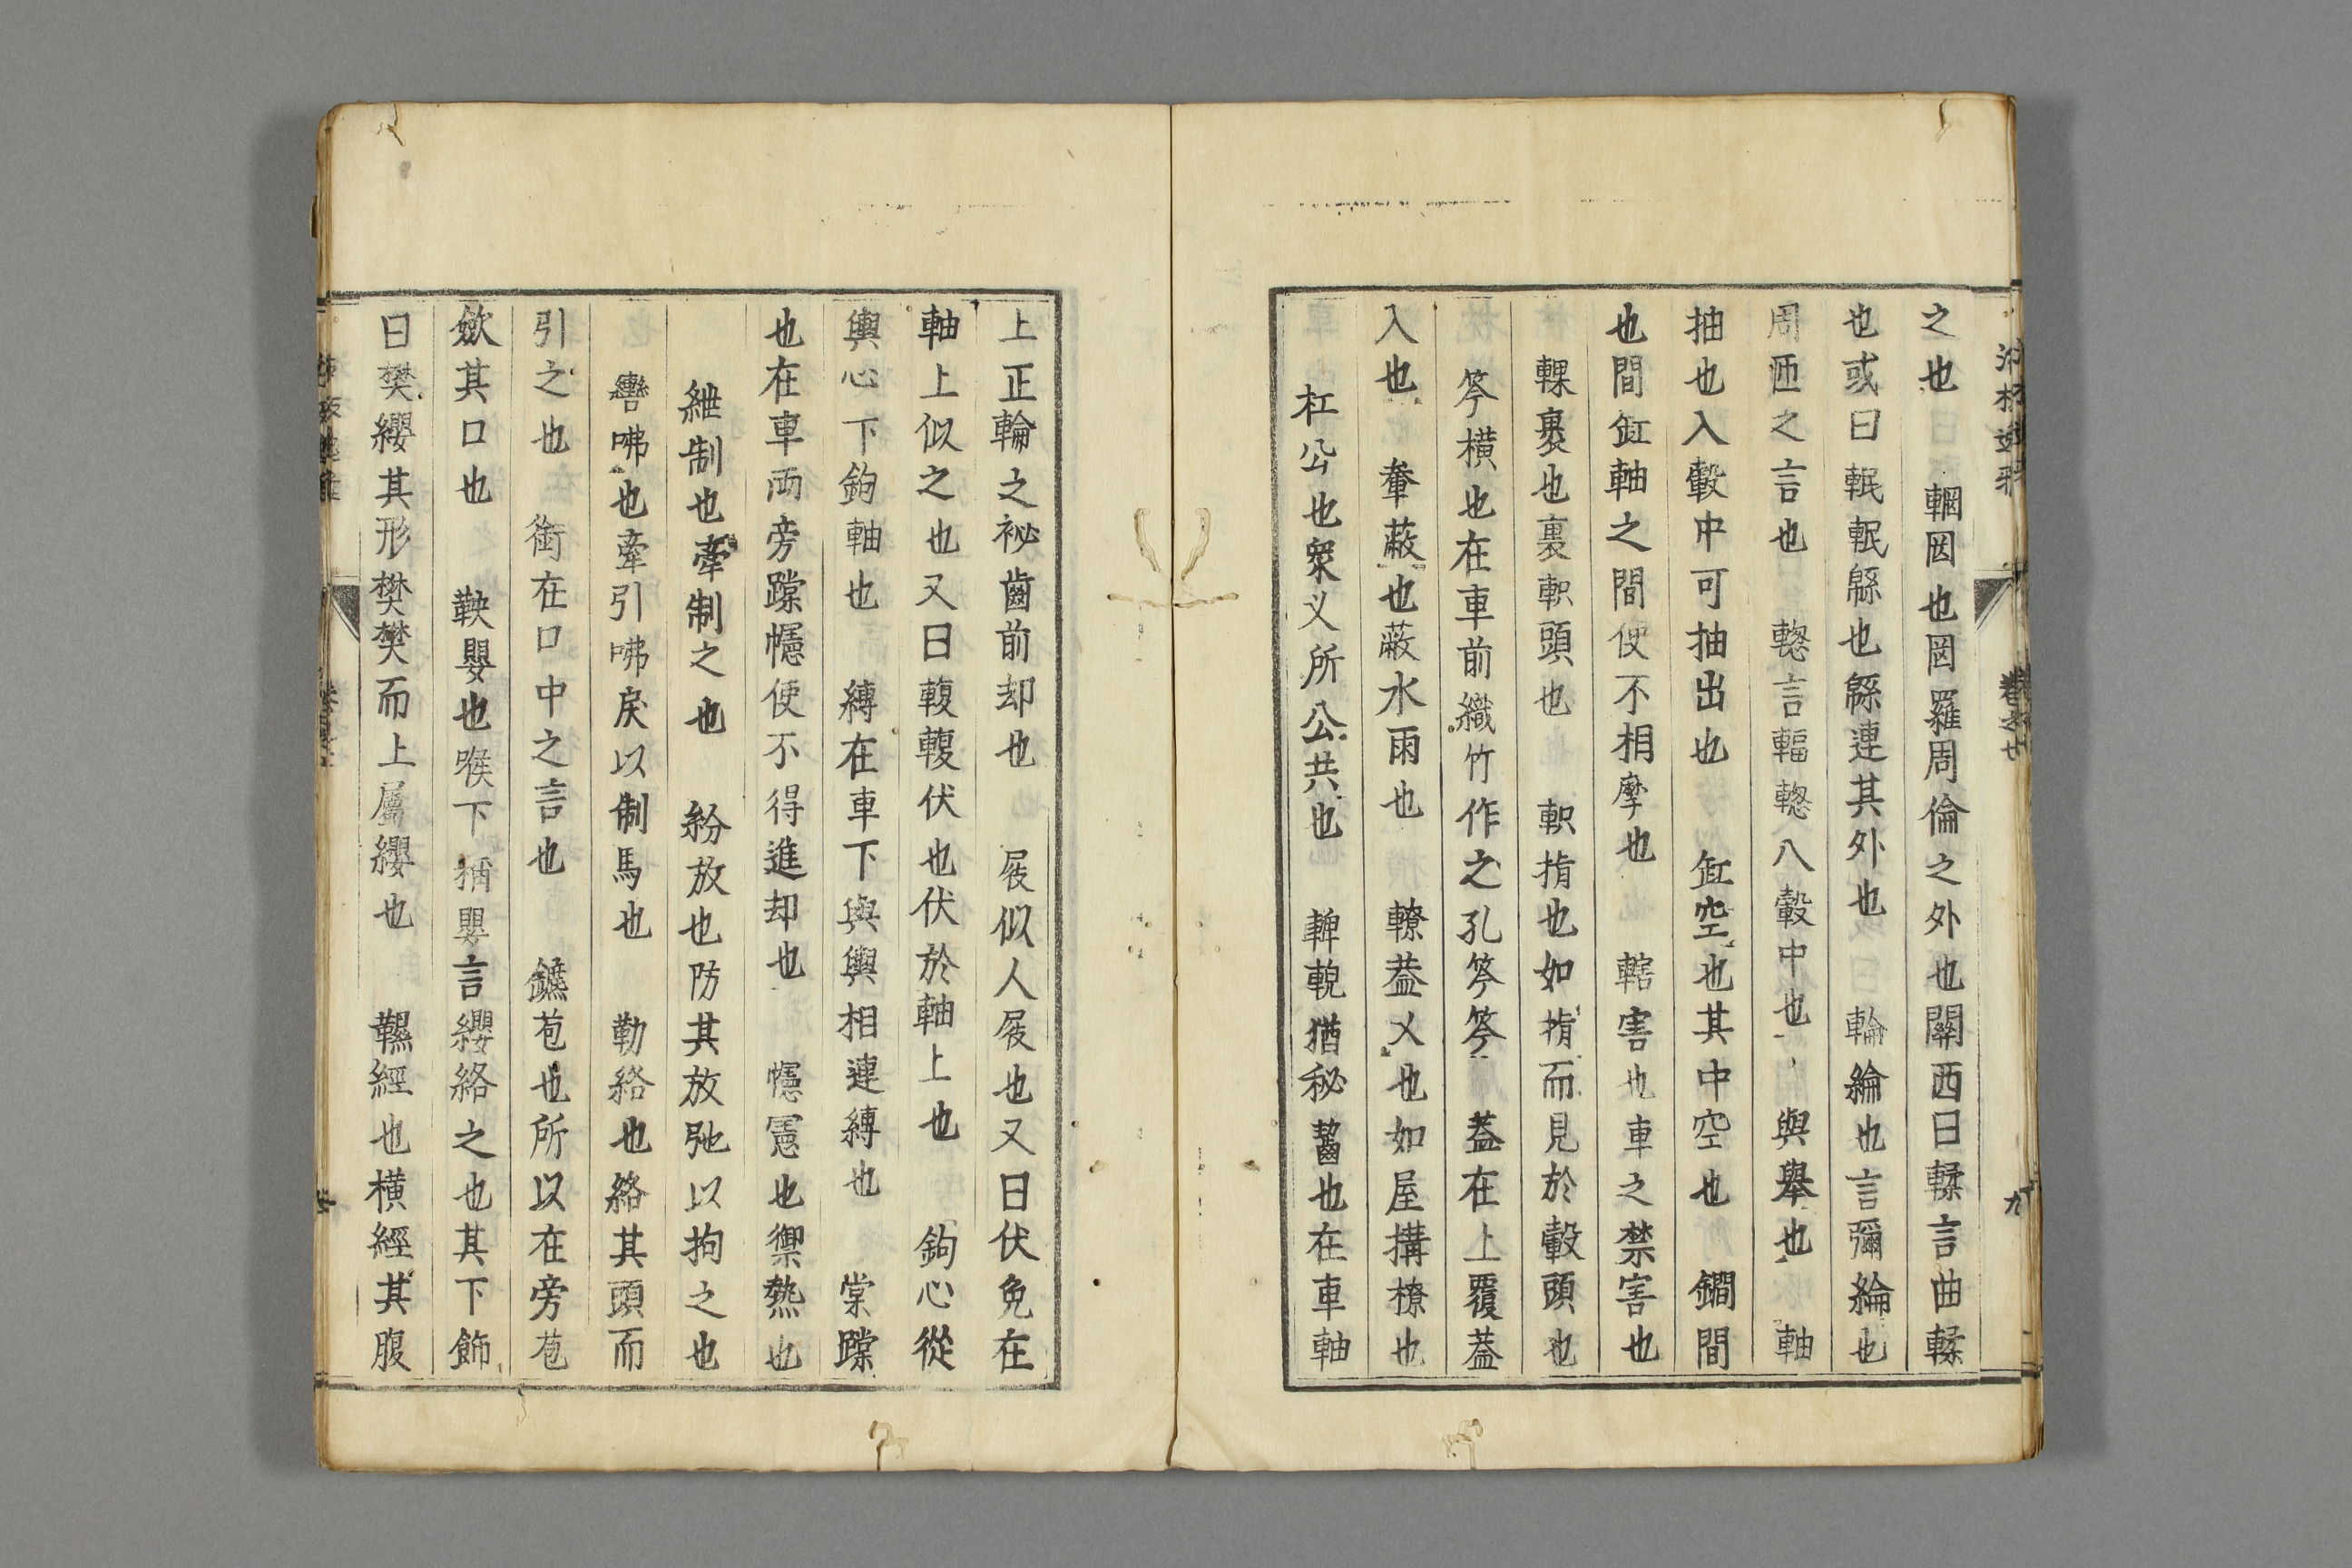 之也　輞罔也罔羅周倫之外也關西曰輮言曲輮
也或曰䡑䡑緜也緜連其外也　輪綸也言彌綸也
周匝之言也　輹言輻輹入轂中也　輿舉也　軸
抽也入轂中可抽出也　釭空也其中空也　鐗間
也間釭軸之間使不相摩也　轄害也車之禁害也
輠裹也裏軹頭也　軹揩也如揩而見於轂頭也
笭橫也在車前織竹作之孔笭笭　葢在上覆葢
入也　軬蔽也蔽水雨也　轑葢乂也如屋構橑也
杠公也衆义所公共也　䡟輗猶秘齧也在車軸
上正輪之祕齒前却也　屐似人屐也又曰伏兔在
軸上似之也又曰輹輹伏也伏於軸上也　鉤心從
輿心下鉤軸也　縛在車下與輿相連縛也　棠𨄔
也在車兩旁𨄔幰使不得進却也　幰憲也禦熱也
紲制也牽制之也　紛放也防其放弛以拘之也
轡咈也牽引咈戾以制馬也　勒絡也絡其頭而
引之也　銜在口中之言也　鑣苞也所以在旁苞
歛其口也　鞅嬰也喉下稱嬰言纓絡之也其下飾
曰樊纓其形樊樊而上屬纓也　韅經也橫經其腹